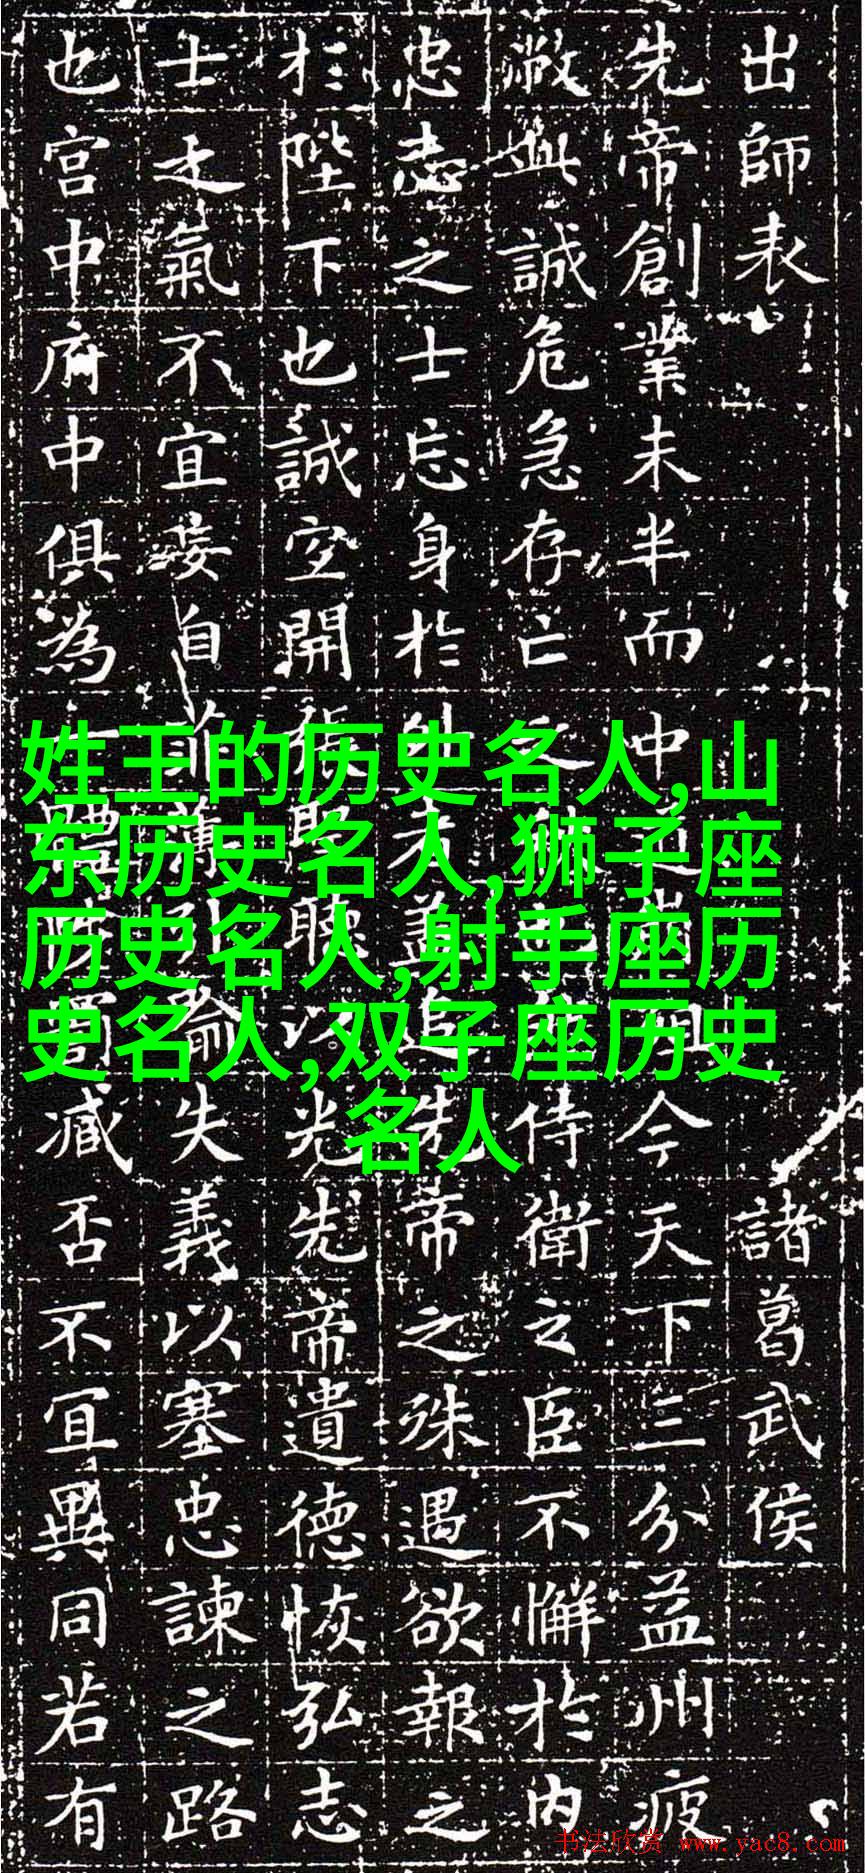 出師表
諸葛武侯
先帝創業未半而中
今天下三分益州疲
敝此誠危急存亡之
侍衛之臣不懈於內
忠志之士忘身於外者蓋追先帝之殊遇欲報之
於陛下也誠空開張
聽以光先帝遺德恢弘志
士之氣不宜妄自
薄引喻失義以塞忠諫之路
也宮中府中俱為一體
罰臧否不宜異同若有
姓王的历史名人,山
东历史名人,狮子座
历史名人,射手座历
史名人,双子座历史
名人
书法欣赏 www.yac8.com